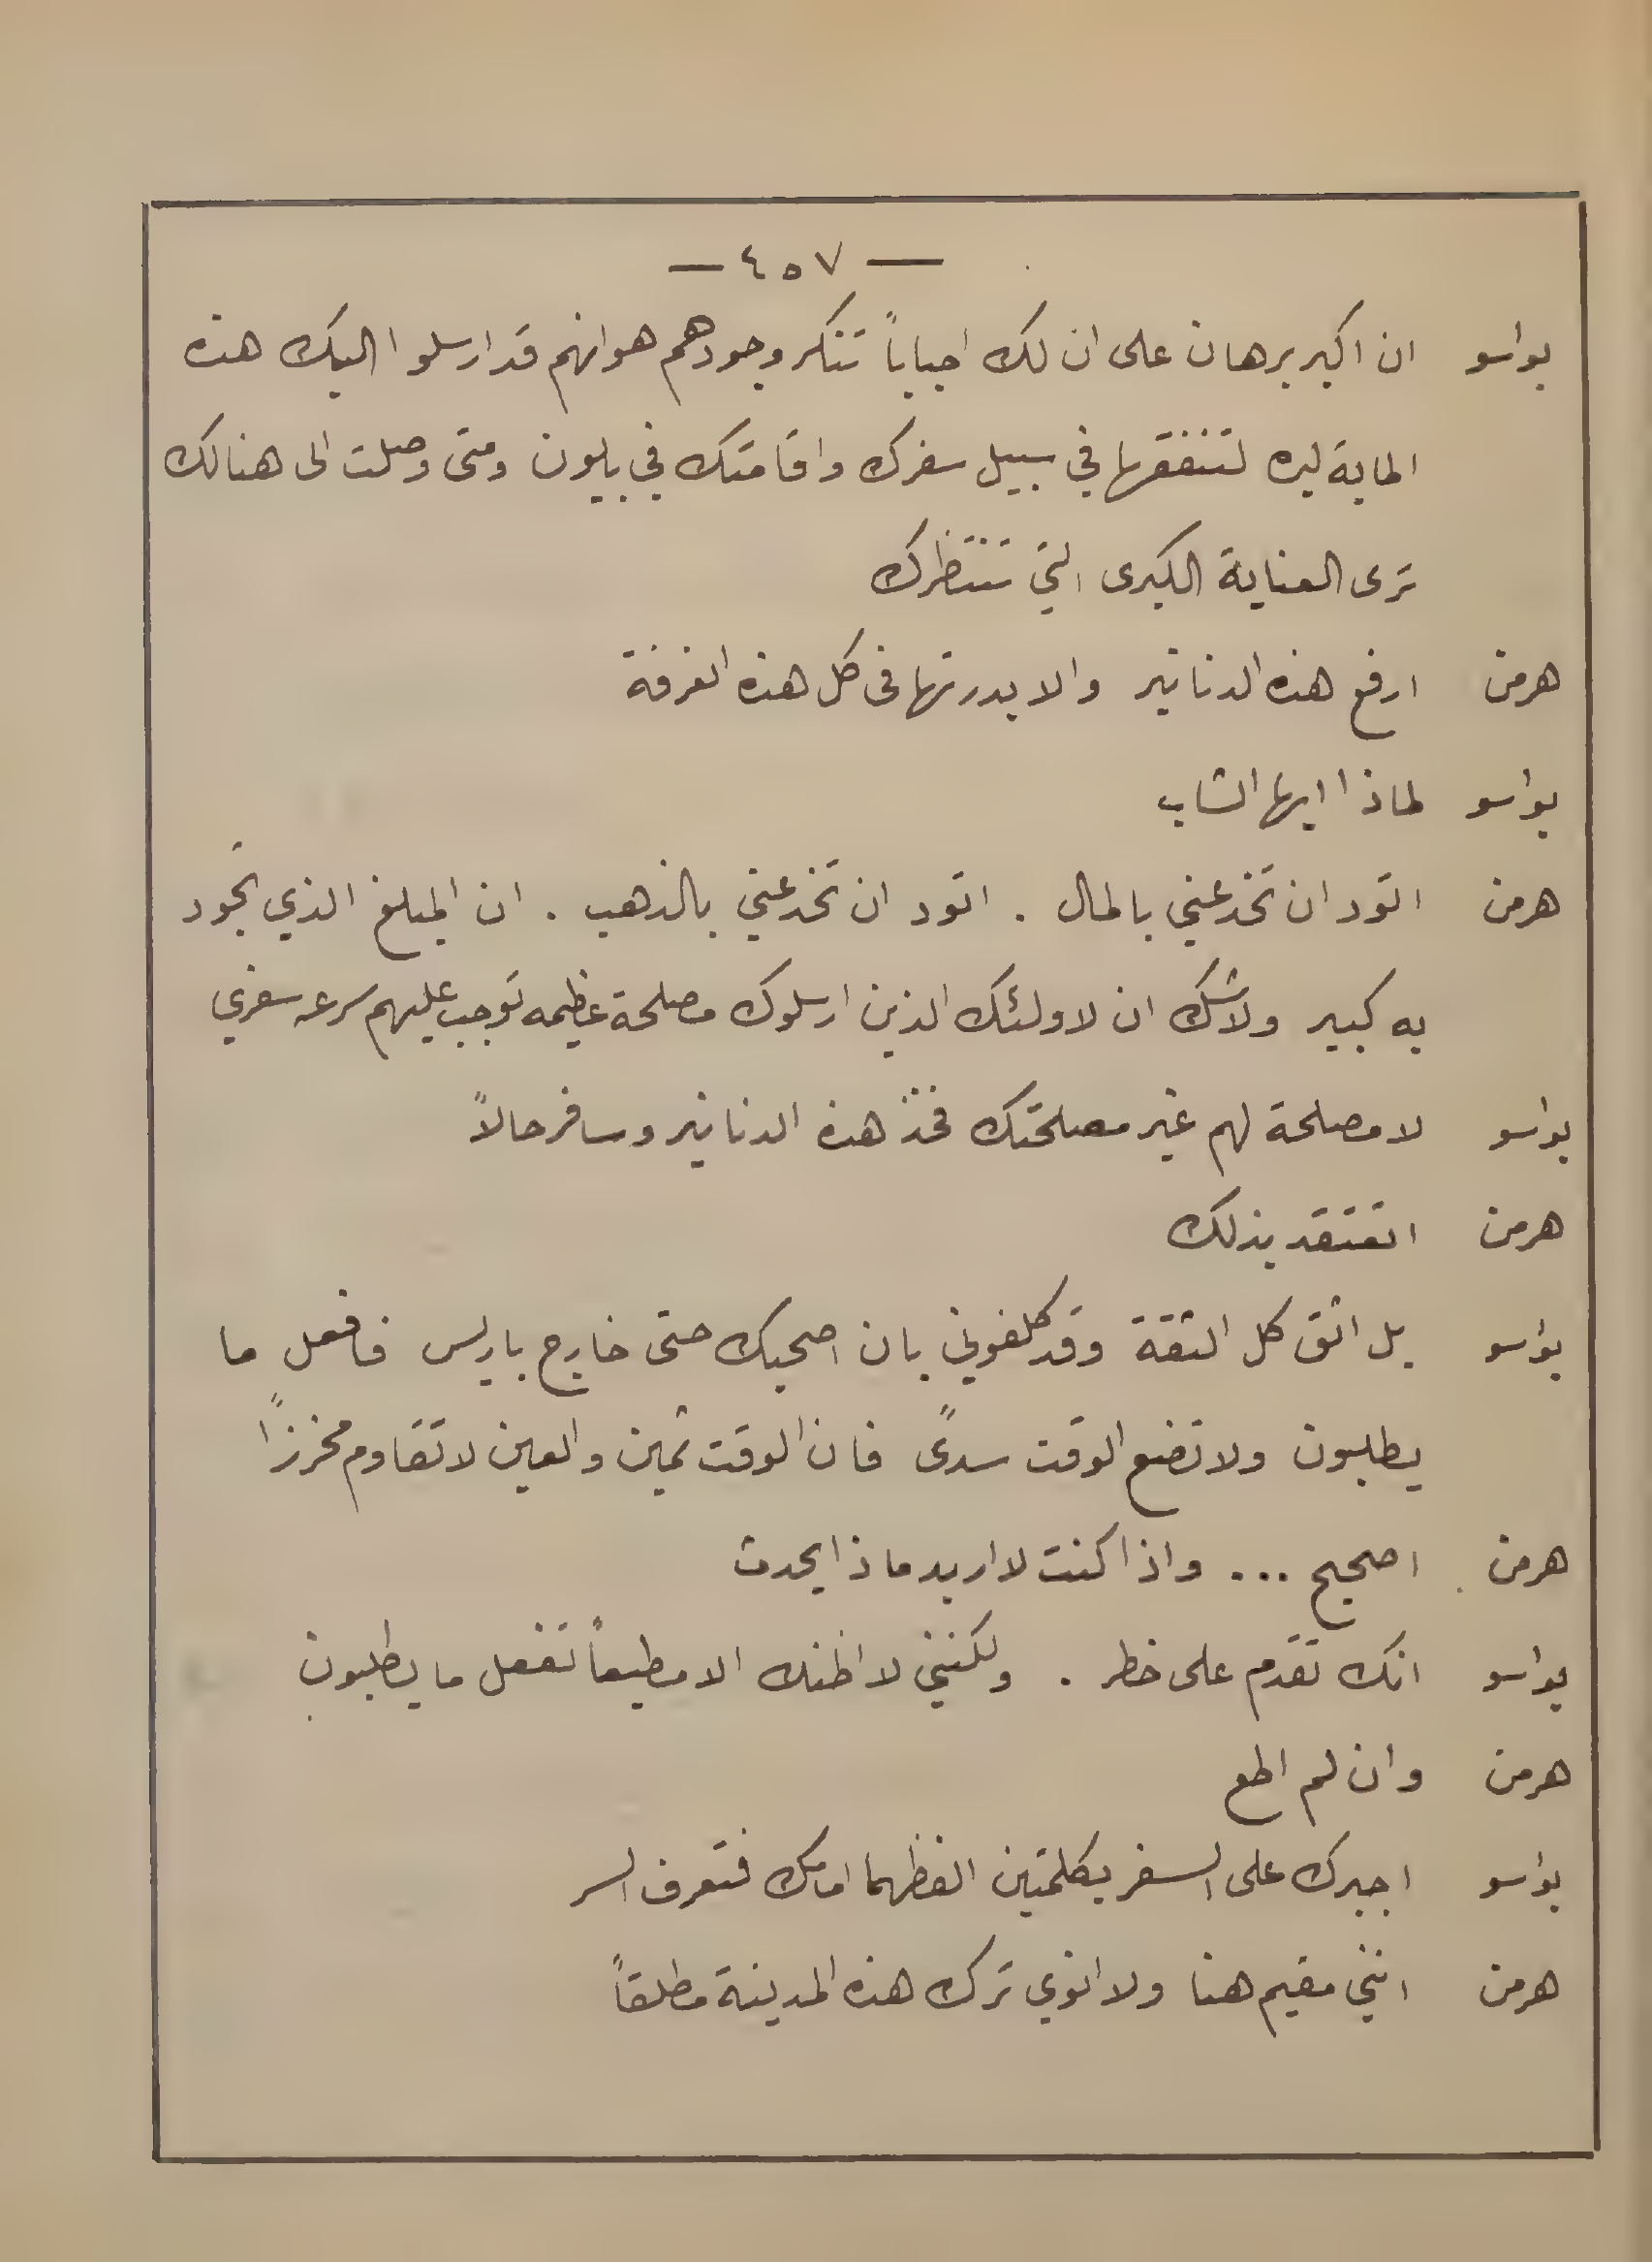 — ٤٥٧ —
بواسو ان اكبر برهان على ان لك احباباً تنكر وجودهم هو انهم قد ارسلوا اليك هذه
الماية ليره لتنفقها في سبيل سفرك واقامتك في بليون ومتى وصلت الى هنالك
ترى العناية الكبرى التي تنتظرك
هرمن ارفع هذه الدنانير والا بدرتها في كل هذه الغرفة
بواسو لماذا ايها الشاب
هرمن اتود ان تخدعني بالمال . اتود ان تخدعني بالذهب . ان المبلغ الذي تجود
به كبير ولا شك ان لاولئك الذين ارسلوك مصلحة عظيمه توجب عليهم سرعه سفري
بواسو لا مصلحة لهم غير مصلحتك فخذ هذه الدنانير وسافر حالاً
هرمن اتعتقد بذلك
بواسو بل اثق كل الثقة وقد كلفوني بان اصحبك حتى خارج باريس فافعل ما
يطلبون ولا تضع الوقت سدىً فان الوقت ثمين والعين لا تقاوم مخرزاً
هرمن اصحيح ... واذا كنت لا اريد ماذا يحدث
بواسو انك تقدم على خطر . ولكنني لا اظنك الا مطيعاً تفعل ما يطلبون
هرمن وان لم اطع
بواسو اجبرك على السفر بكلمتين الفظهما امامك فتعرف السر
هرمن انني مقيم هنا ولا انوي ترك هذه المدينة مطلقاً